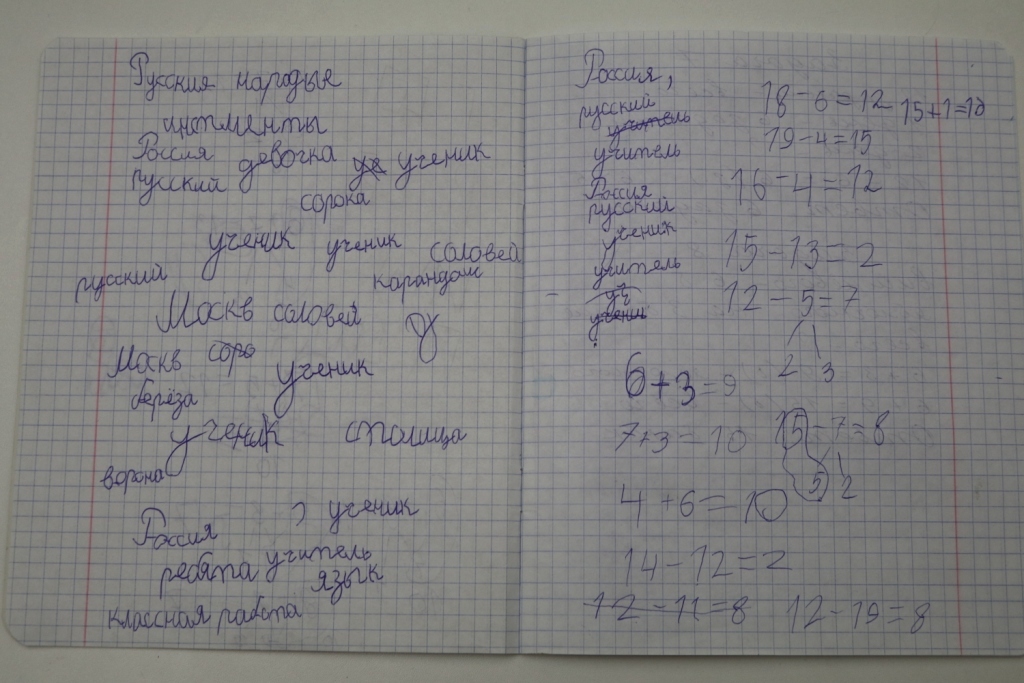 Русския народые
инстменты
Россия девочка уч ученик
русский
сорока
ученик ученик соловей
русский карандаш
Москв соловей У
Москв соро ученик
берёза
ученик столица
ворона
ученик
Россия
ребята учитель
язык
классная работа
Россия,
русский
учитель
учитель
Россия
русский
ученик
учитель
уч
учени
18-6=12 15+1=10
19-4=15
16-4=12
15-13=2
12-5=7
2 3
6+3=9
7+3=10 15-7=8
5 2
4+6=10
14-12=2
12-11=8 12-19=8